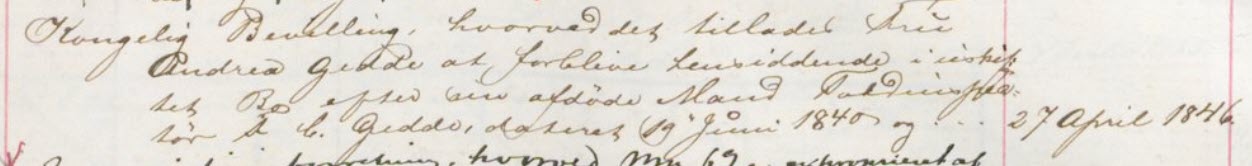 Kongelig Bevilling, hvorved det tillades Frue
Andrea Gedde at forblive hensiddende i uskif-
tet Bo efter sin afdöde Mand Toldinspec-
tör F. C. Gedde, dateret 19 Juni 1840 og ... 27 April 1846
hvorved